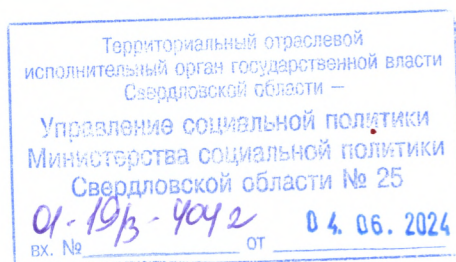 Территориальный отраслевой
исполнительный орган государственной власти
Свердловской области –
Управление социальной политики
Министерства социальной политики
Свердловской области № 25
01-19/3-4042 04. 06. 2024
вх. № от